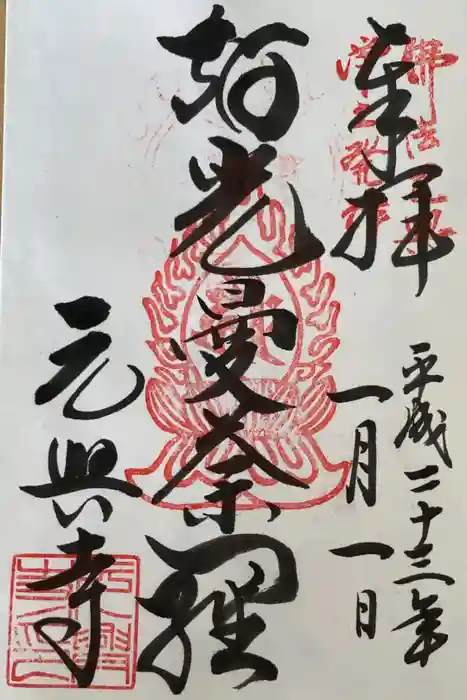 奉拝
平成二十三年
一月一日
智光曼荼羅
元興寺